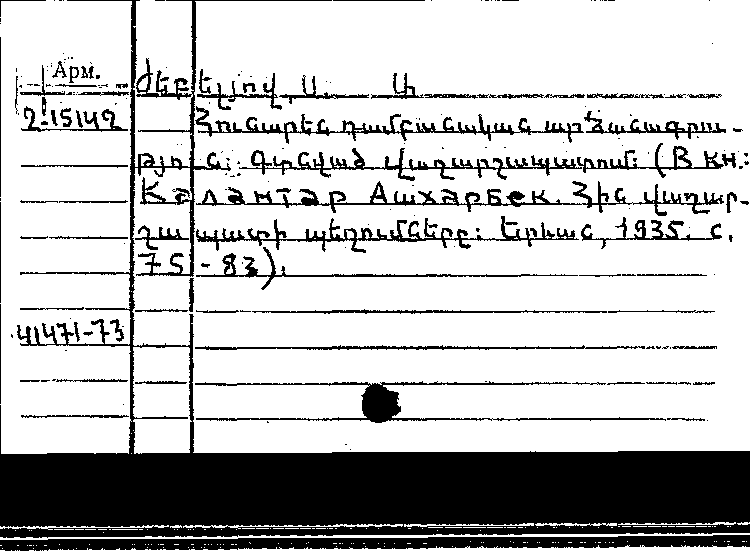 Арм. Ժեբելյով, Ս. Ա
2!15142 Հունարեն դամբանական արձանագրու-
թյուն: Գտնված Վաղարշապատում: (В кн.:
Калантар Ашхарбек. Հին Վաղար-
շապատի պեղումները: Երևան, 1935. с.
75-83).
41471-73